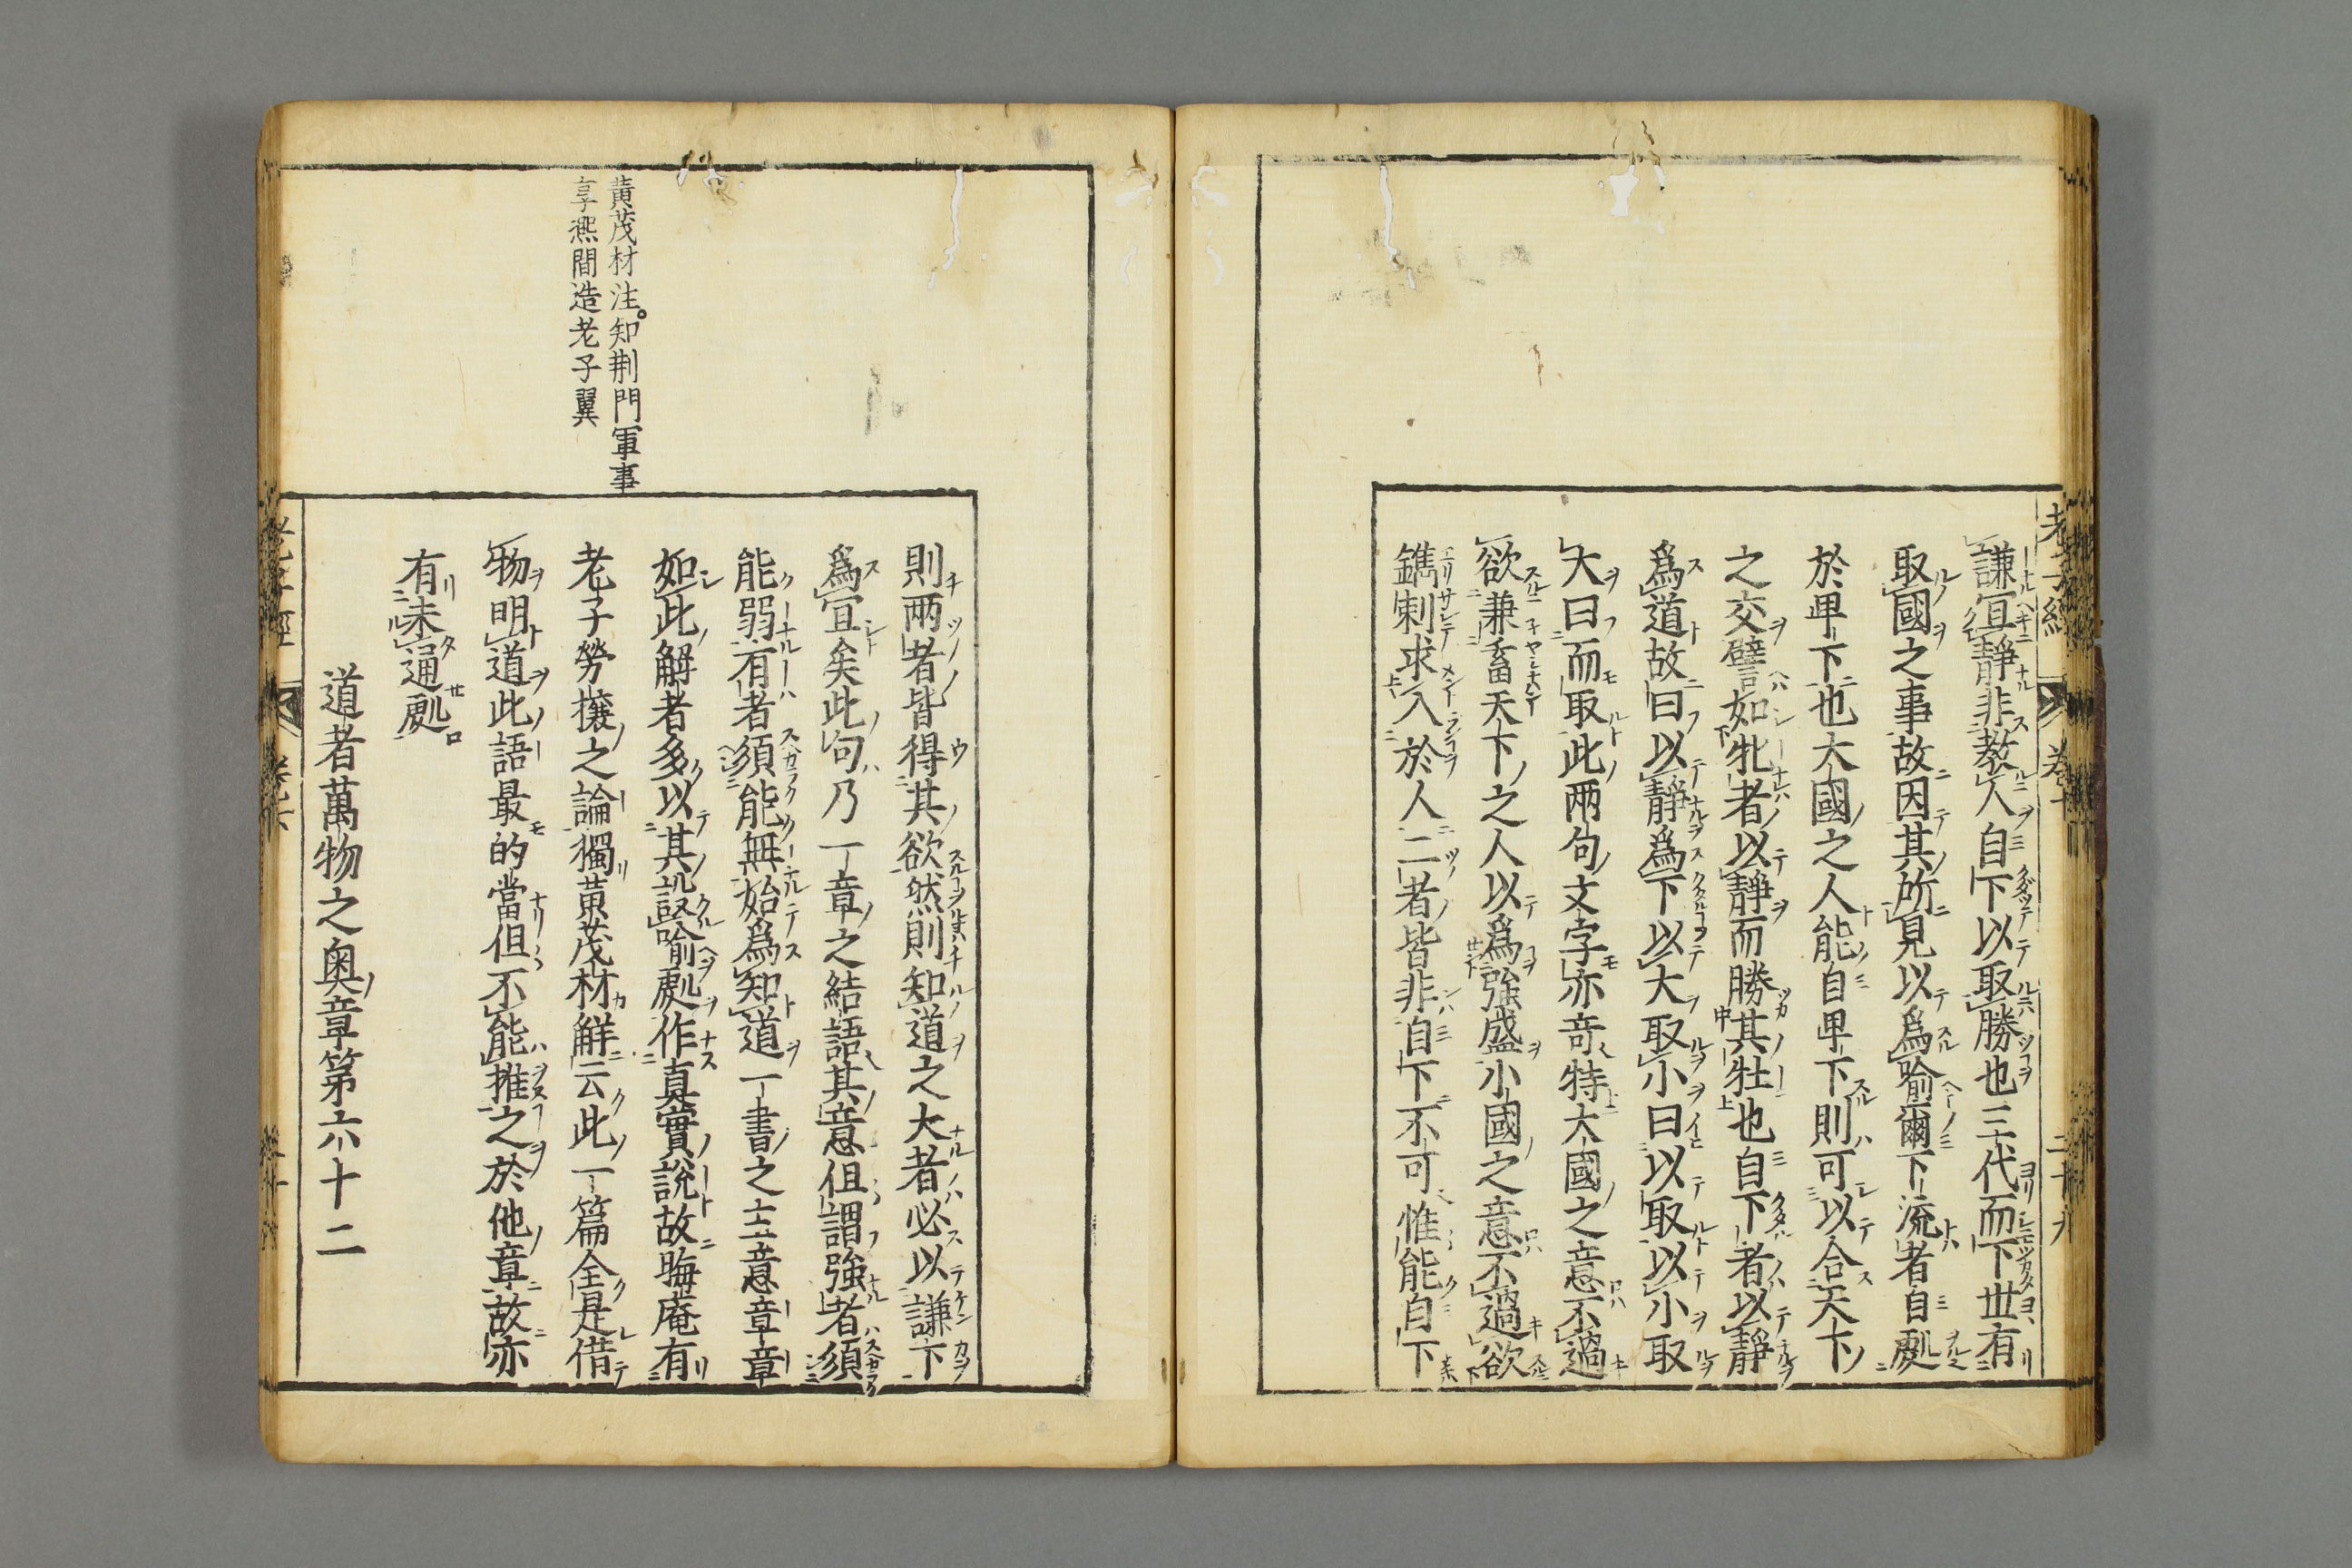 謙宜靜非教人自下以取勝也三代而下世有
取國之事故因其所見以爲喻爾下流者自處
於卑下也大國之人能自卑下則可以合天下
之交譬如牝者以靜而勝其牡也自下者以靜
爲道故曰以靜爲下以大取小曰以取以小取
大曰而取此兩句文字亦奇特大國之意不過
欲兼畜天下之人以爲強盛小國之意不過欲
鐫刺求入於人二者皆非自下不可惟能自下
則兩者皆得其欲然則知道之大者必以謙下
爲宜矣此句乃一章之結語其意但謂強者須
能弱有者須能無始爲知道一書之主意章章
如此解者多以其設喻處作真實說故晦庵有
老子勞攘之論獨黃茂材解云此一篇全是借
物明道此語最的當但不能推之於他章故亦
有未通處
道者萬物之奧章第六十二
黃茂材注。知荆門軍事
享熈間造老子翼